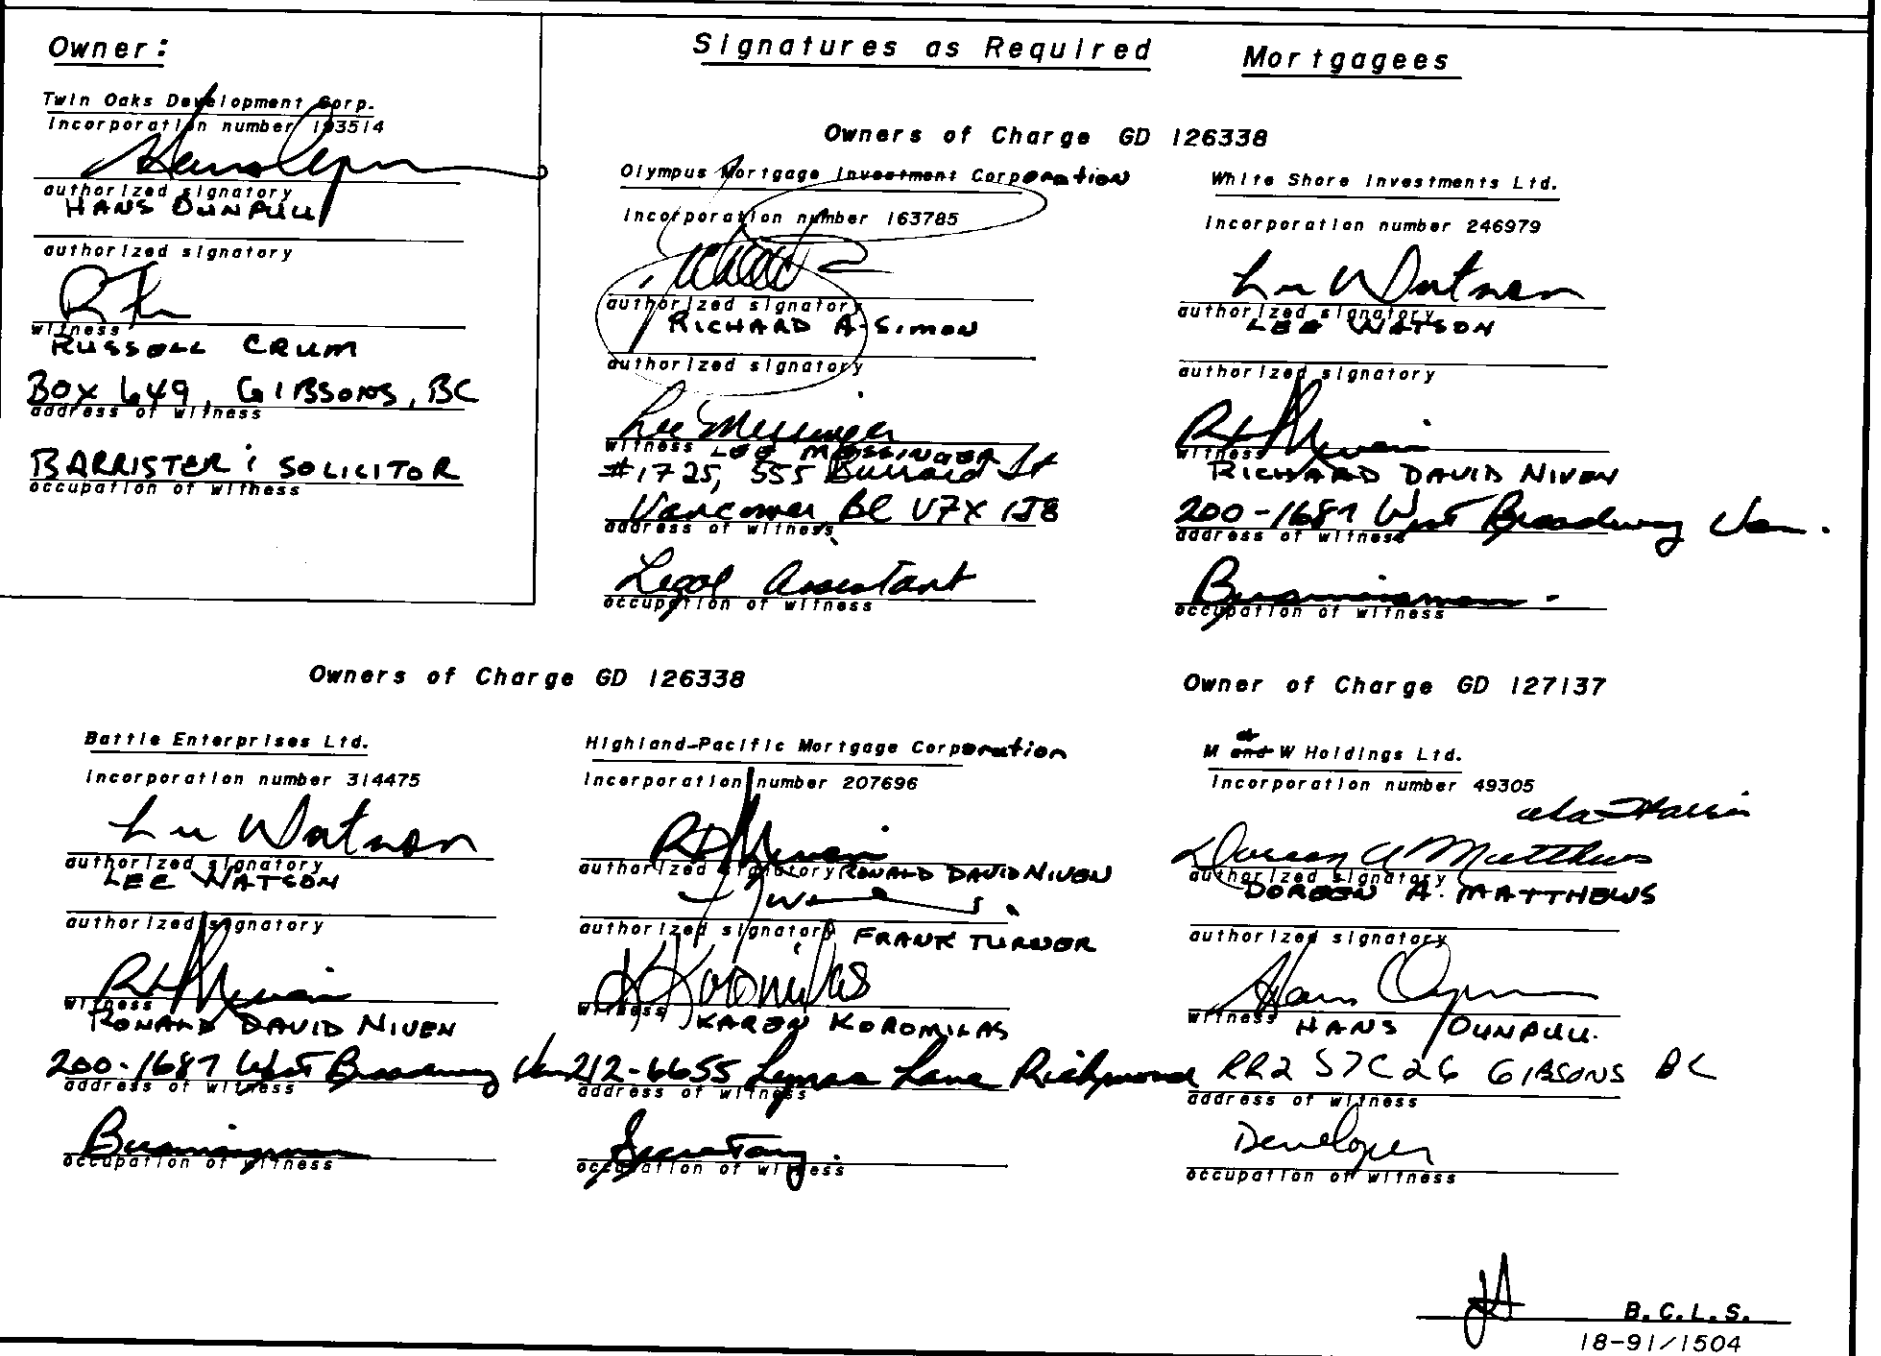 Owner:
Twin Oaks Development Corp.
Incorporation number 193514
authorized signatory
HANS OUNPUU
authorized signatory
witness
RUSSELL CRUM
BOX 649, GIBSONS, BC
address of witness
BARRISTER & SOLICITOR
occupation of witness
Signatures as Required
Mortgagees
Owners of Charge GD 126338
Olympus Mortgage Investment Corporation
Incorporation number 163785
authorized signatory
RICHARD A. SIMON
authorized signatory
Lee Messinger
witness LEE MESSINGER
#1725, 555 Burrard St
Vancouver BC V7X 1J8
address of witness
Legal Assistant
occupation of witness
White Shore Investments Ltd.
Incorporation number 246979
Lee Watson
authorized signatory
LEE WATSON
authorized signatory
witness
RICHARD DAVID NIVEN
200-1687 West Broadway Van.
address of witness
Businessman.
occupation of witness
Owners of Charge GD 126338
Battle Enterprises Ltd.
Incorporation number 314475
Lee Watson
authorized signatory
LEE WATSON
authorized signatory
witness
RONALD DAVID NIVEN
200-1687 West Broadway Van
address of witness
Businessman
occupation of witness
Highland-Pacific Mortgage Corporation
Incorporation number 207696
authorized signatory RONALD DAVID NIVEN
authorized signatory FRANK TURNER
K Koromilas
witness KAREN KOROMILAS
212-6655 Lynas Lane Richmond
address of witness
Secretary.
occupation of witness
Owner of Charge GD 127137
M and W Holdings Ltd.
Incorporation number 49305
Doreen A Matthews
authorized signatory
DOREEN A. MATTHEWS
authorized signatory
witness HANS OUNPUU.
RR2 S7C26 GIBSONS BC
address of witness
Developer
occupation of witness
B.C.L.S.
18-91/1504